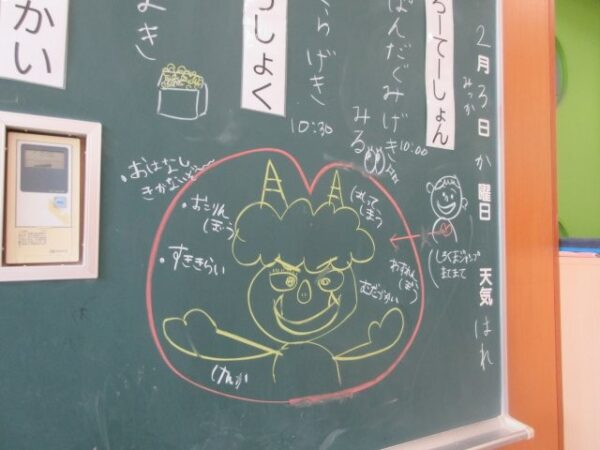 2月3日か曜日 天気はれ
みっか
ろーてーしょん
ぱんだぐみげき
10:00
みる
らげき
10:30
しょく
よき
かい
おはなし
きかないぞ〜
おこりん
(ぼう)
すききらい
けんか
わすれん
(ぼう)
むだづかい
しまう